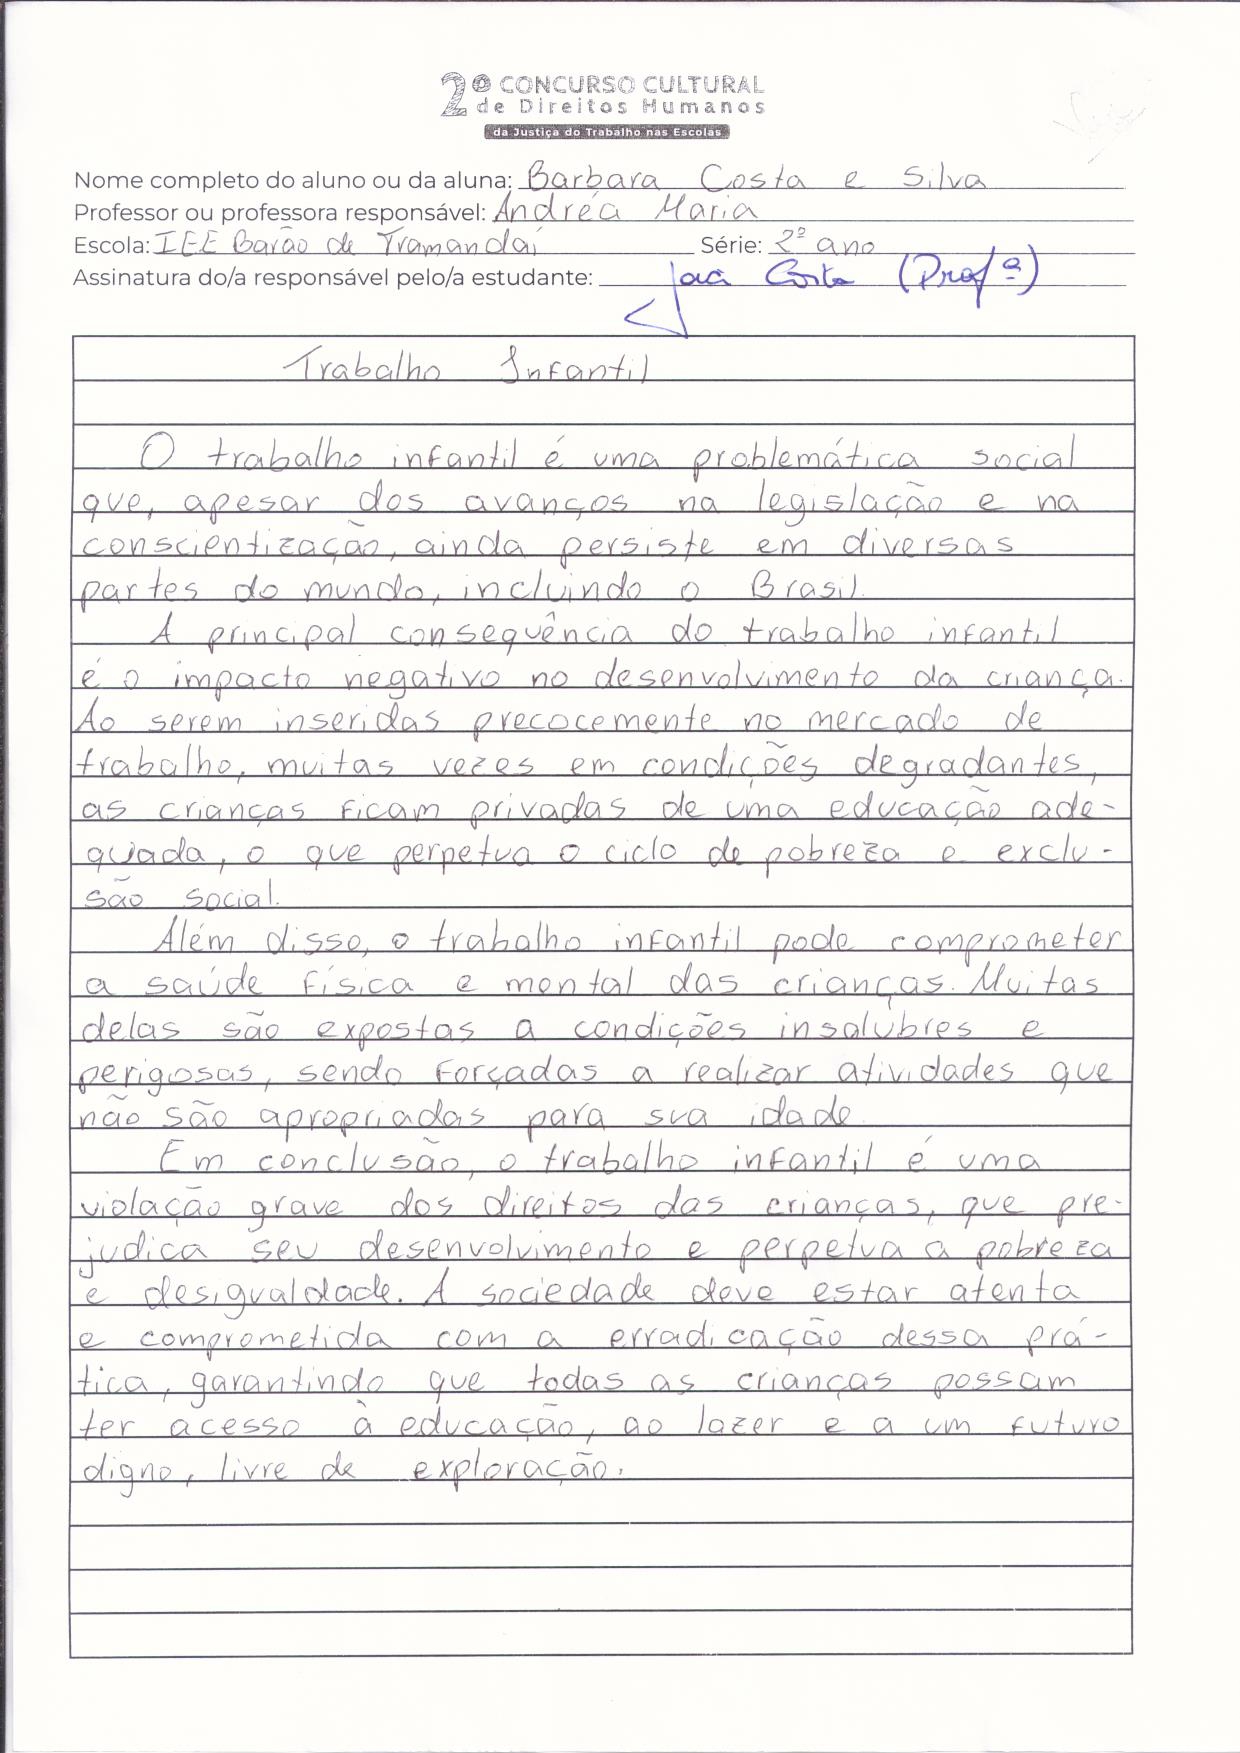 2º CONCURSO CULTURAL
de Direitos Humanos
da Justiça do Trabalho nas Escolas
Nome completo do aluno ou da aluna: Barbara Costa e Silva
Professor ou professora responsável: Andréa Maria
Escola: IEE Barão de Tramandaí Série: 2º ano
Assinatura do/a responsável pelo/a estudante: Costa (Profª)
Trabalho Infantil
O trabalho infantil é uma problemática social
que, apesar dos avanços na legislação e na
conscientização, ainda persiste em diversas
partes do mundo, incluindo o Brasil.
A principal consequência do trabalho infantil
é o impacto negativo no desenvolvimento da criança.
Ao serem inseridas precocemente no mercado de
trabalho, muitas vezes em condições degradantes,
as crianças ficam privadas de uma educação ade-
quada, o que perpetua o ciclo de pobreza e exclu-
são social.
Além disso, o trabalho infantil pode comprometer
a saúde física e mental das crianças. Muitas
delas são expostas a condições insalubres e
perigosas, sendo forçadas a realizar atividades que
não são apropriadas para sua idade.
Em conclusão, o trabalho infantil é uma
violação grave dos direitos das crianças, que pre-
judica seu desenvolvimento e perpetua a pobreza
e desigualdade. A sociedade deve estar atenta
e comprometida com a erradicação dessa prá-
tica, garantindo que todas as crianças possam
ter acesso à educação, ao lazer e a um futuro
digno, livre de exploração.